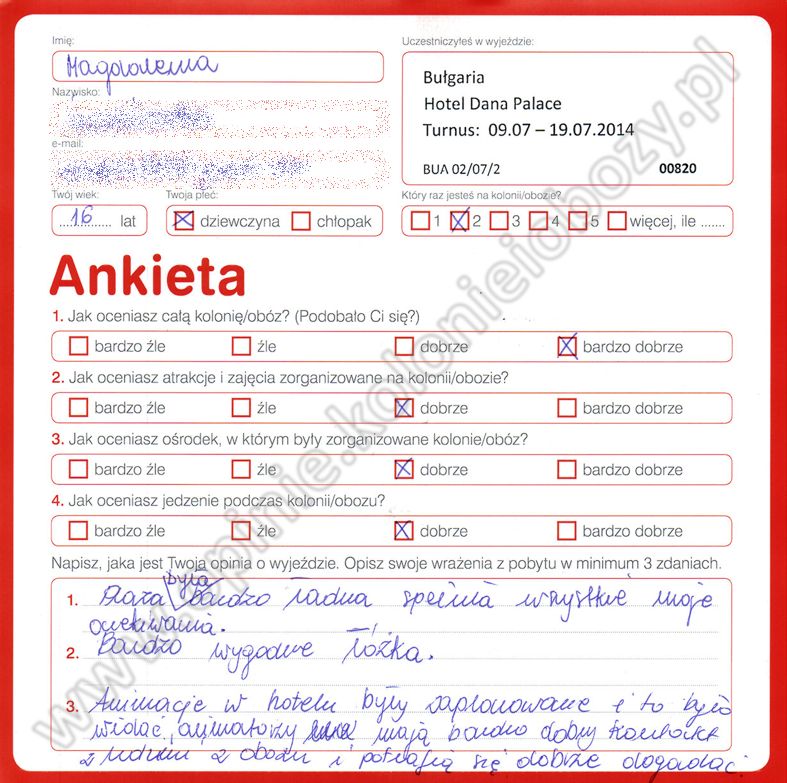 Imię:
Uczestniczyłeś w wyjeździe:
Magdalena
Bułgaria
Hotel Dana Palace
Turnus: 09.07 – 19.07.2014
BUA 02/07/2
00820
Nazwisko:
e-mail:
Twój wiek:
Twoja płeć:
Który raz jesteś na kolonii/obozie?
16 lat
dziewczyna chłopak
1 2 3 4 5 więcej, ile .......
Ankieta
1. Jak oceniasz całą kolonię/obóz? (Podobało Ci się?)
bardzo źle źle dobrze bardzo dobrze
2. Jak oceniasz atrakcje i zajęcia zorganizowane na kolonii/obozie?
bardzo źle źle dobrze bardzo dobrze
3. Jak oceniasz ośrodek, w którym były zorganizowane kolonie/obóz?
bardzo źle źle dobrze bardzo dobrze
4. Jak oceniasz jedzenie podczas kolonii/obozu?
bardzo źle źle dobrze bardzo dobrze
Napisz, jaka jest Twoja opinia o wyjeździe. Opisz swoje wrażenia z pobytu w minimum 3 zdaniach.
była
1. Plaża bardzo ładna spełnia wszystkie moje
oczekiwania.
2. Bardzo wygodne łóżka.
3. Animacje w hotelu były zaplanowane i to było
widać, animatorzy mają bardzo dobry kontakt
z ludźmi z obozu i potrafią się dobrze dogadać
www.opinie.kolonieiobozy.pl